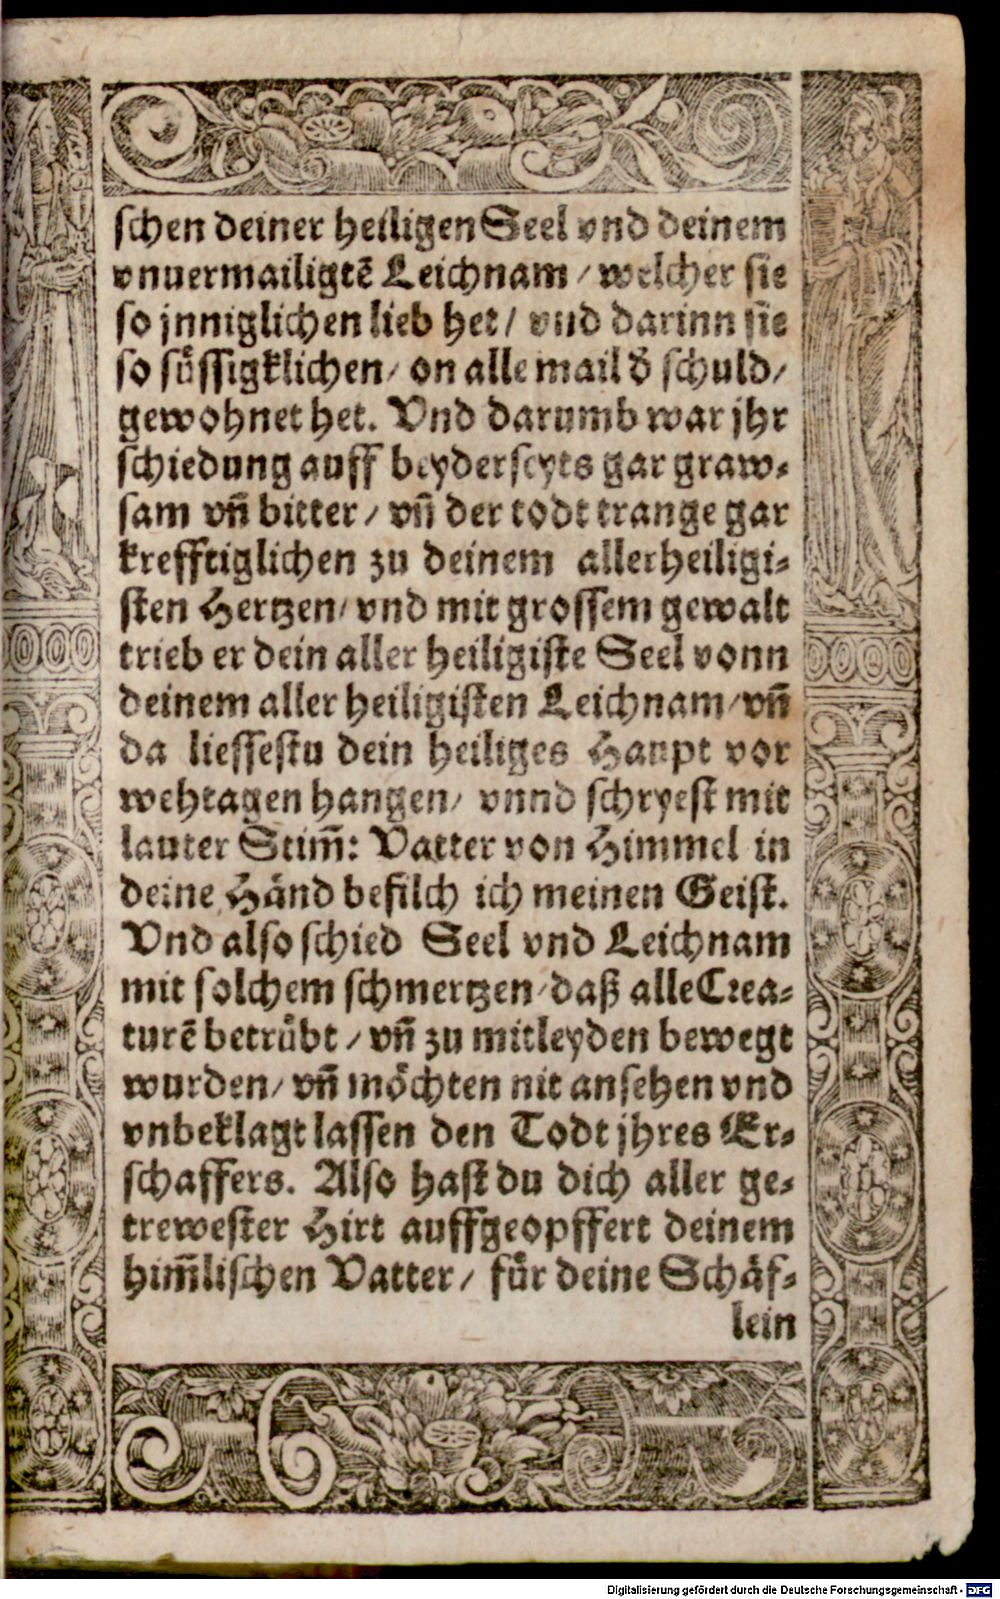 schen deiner heiligen Seel vnd deinem
vnuermailigtẽ Leichnam / welcher sie
so jnniglichen lieb het / vnd darinn sie
so süssigklichen / on alle mail oď schuld /
gewohnet het. Vnd darumb war jhr
schiedung auff beyderseyts gar graw⸗
sam vñ bitter / vñ der todt trange gar
krefftiglichen zu deinem allerheiligi⸗
sten Hertzen / vnd mit grossem gewalt
trieb er dein aller heiligiste Seel vonn
deinem aller heiligisten Leichnam / vñ
da liessestu dein heiliges Haupt vor
wehtagen hangen / vnnd schryest mit
lauter Stim̃: Vatter von Himmel in
deine Händ befilch ich meinen Geist.
Vnd also schied Seel vnd Leichnam
mit solchem schmertzen / daß alle Crea⸗
turẽ betrübt / vñ zu mitleyden bewegt
wurden / vñ möchten nit ansehen vnd
vnbeklagt lassen den Todt jhres Er⸗
schaffers. Also hast du dich aller ge⸗
trewester Hirt auffgeopffert deinem
him̃lischen Vatter / für deine Schäf⸗
lein
Digitalisierung gefördert durch die Deutsche Forschungsgemeinschaft - DFG